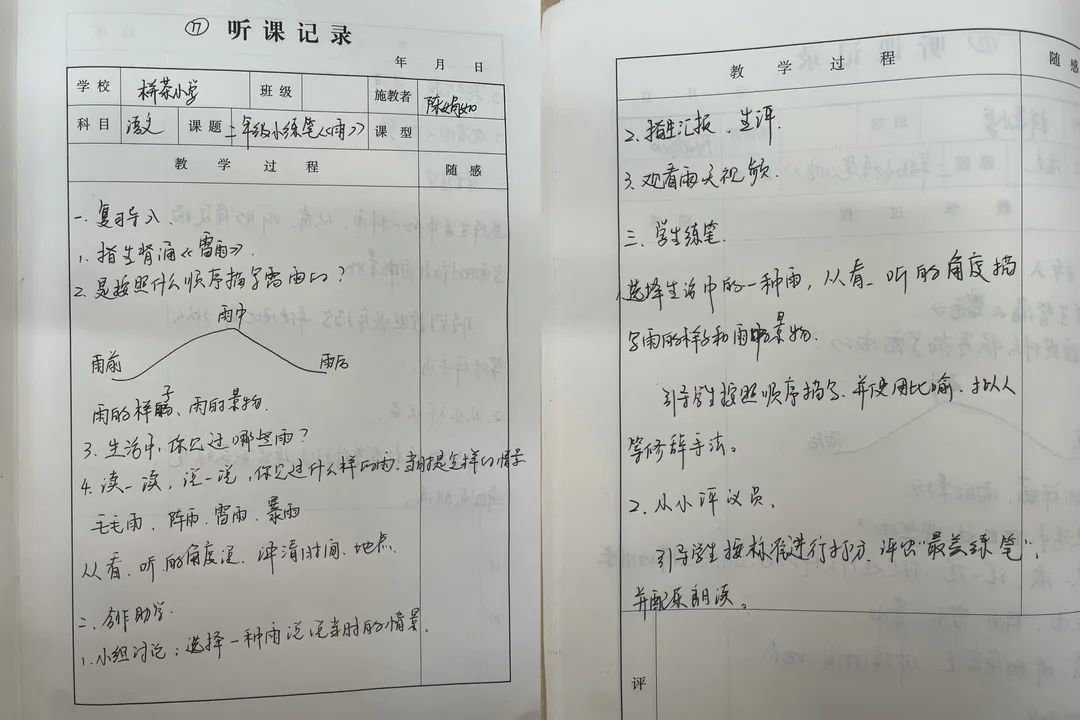 ⑰ 听课记录
年 月 日
学校 栟茶小学 班级 施教者 陈
科目 语文 课题 二年级小练笔《雨》 课型
教学过程 随感
一、复习导入
1. 指生背诵《雷雨》.
2. 是按照什么顺序描写雷雨的?
雨中
雨前 雨后
雨的样子、雨的景物.
3. 生活中,你见过哪些雨?
4. 读一读,说一说,你见过什么样的雨.当时是怎样的情景
毛毛雨、阵雨、雷雨、暴雨
从看、听的角度说,讲清时间、地点.
二、合作助学.
1. 小组讨论:选择一种雨说说当时的情景.
教学过程 随感
2. 指生汇报,生评.
3. 观看雨天视频.
三、学生练笔.
1、选择生活中的一种雨,从看、听的角度描
写雨的样子和雨中景物.
引导学生按照顺序描写.并使用比喻、拟人
等修辞手法。
2. 从小评议员.
引导学生按标准进行打分,评出“最美练笔”,
并配乐朗读。
评